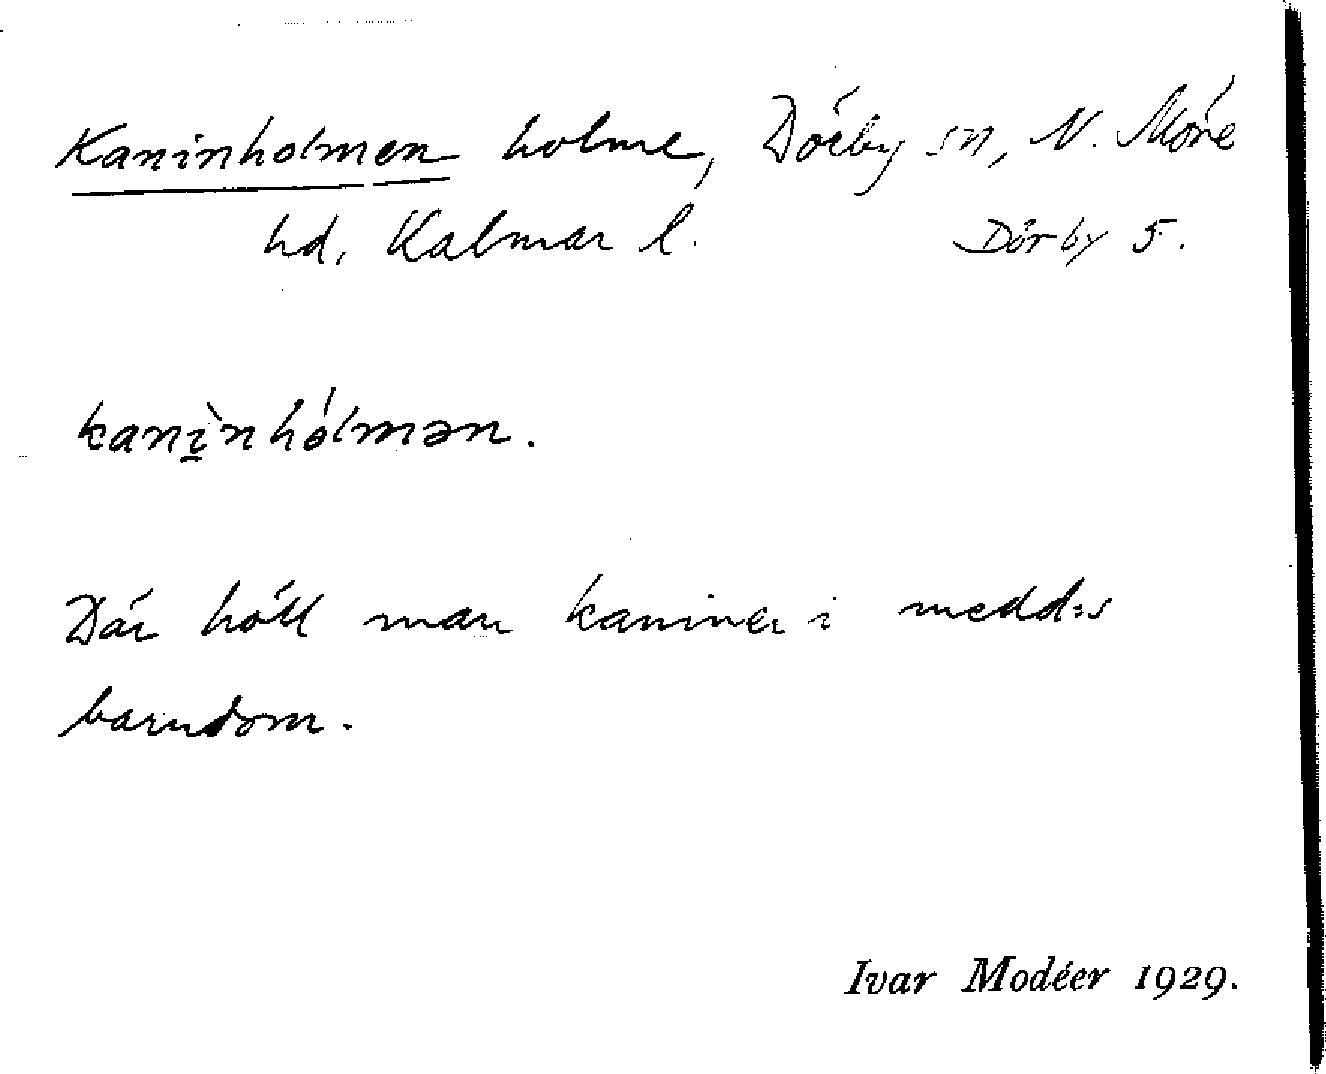 Kaninholmen holme, Dörby sn, N. Möre
hd, Kalmar l. Dörby 5.
kanìnhólmən.
Där höll man kaniner i medd:s
barndom.
Ivar Modéer 1929.